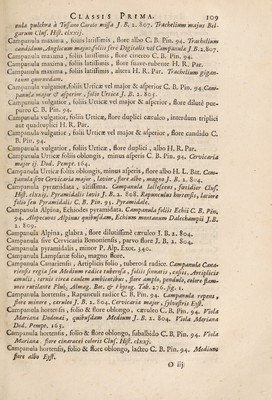 CLASSIS PRIMA. 109
nula pulchra à Tossano Carolo missa J. B. 2. 807. Trachelium majus Bel-
garum Clus. Hist. clxxij.
Campanula maxima, foliis latissimis, flore albo C. B. Pin. 94. Trachelium
candidum, Anglicum majus, foliis ferè Digitalis vel Campanula J. B. 2. 807.
Campanula maxima, foliis latissimis, flore cinereo C. B. Pin. 94.
Campanula maxima, foliis latissimis, flore suave-rubente H. R. Par.
Campanula maxima, foliis latissimis, altera H. R. Par. Trachelium gigan-
teum quorundam.
Campanula vulgatior, foliis Urticæ vel major & asperior C. B. Pin. 94. Cam-
panula major & asperior, folio Urticæ J. B. 2. 805.
Campanula vulgatior, foliis Urticæ vel major & asperior, flore dilutè pur-
pureo C. B. Pin. 94.
Campanula vulgatior, foliis Urticæ, flore duplici cæruleo, interdum triplici
aut quadruplici H. R. Par.
Campanula vulgatior, foliis Urticæ vel major & asperior, flore candido C.
B. Pin. 94.
Campanula vulgatior, foliis Urticæ, flore duplici, albo H. R. Par.
Campanula Urticæ foliis oblongis, minus asperis C. B. Pin. 94. Cervicaria
major ij. Dod. Pempt. 164.
Campanula Urticæ foliis oblongis, minus asperis, flore albo H. L. Bat. Cam-
panula sive Cervicaria major, lenior, flore albo, magno J. B. 2. 804.
Campanula pyramidata, altissima. Campanula lactescens, foliosior Clus.
Hist. clxxij. Pyramidalis lutetii J. B. 2. 808. Rapunculus hortensis, latiore
folio seu Pyramidalis C. B. Pin. 93. Pyramidale.
Campanula Alpina, Echiodes pyramidata. Campanula foliis Echii C. B. Pin.
94. Alopecuros Alpinus quibusdam, Echium montanum Dalechampii J. B.
2. 809.
Campanula Alpina, glabra, flore dilutissimè cæruleo J. B. 2. 804.
Campanula sive Cervicaria Bononiensis, parvo flore J. B. 2. 804.
Campanula pyramidalis, minor P. Alp. Exot. 340.
Campanula Lampsanæ folio, magno flore.
Campanula Canariensis, Atriplicis folio, tuberosâ radice. Campanula Cana-
riensis regia seu Medium radice tuberosâ, foliis sinuatis, cæsiis, Atriplicis
æmulis, ternis circa caulem ambientibus, flore amplo, pendulo, colore flam-
meo rutilante Pluk. Almag. Bot. & Phytog. Tab. 276. fig. 1.
Campanula hortensis, Rapunculi radice C. B. Pin. 94. Campanula repens,
flore minore, cæruleo J. B. 2. 804. Cervicaria major, silvestris Eyst.
Campanula hortensis, folio & flore oblongo, cæruleo C. B. Pin. 94. Viola
Mariana Dodonæi, quibusdam Medium J. B. 2. 804. Viola Mariana
Dod. Pempt. 163.
Campanula hortensis, folio & flore oblongo, subalbido C. B. Pin. 94. Viola
Mariana flore exnurati coloris Clus. Hist. clxxij.
Campanula hortensis, folio & flore oblongo, lacteo C. B. Pin. 94. Medium
flore albo Eyst.
O iij